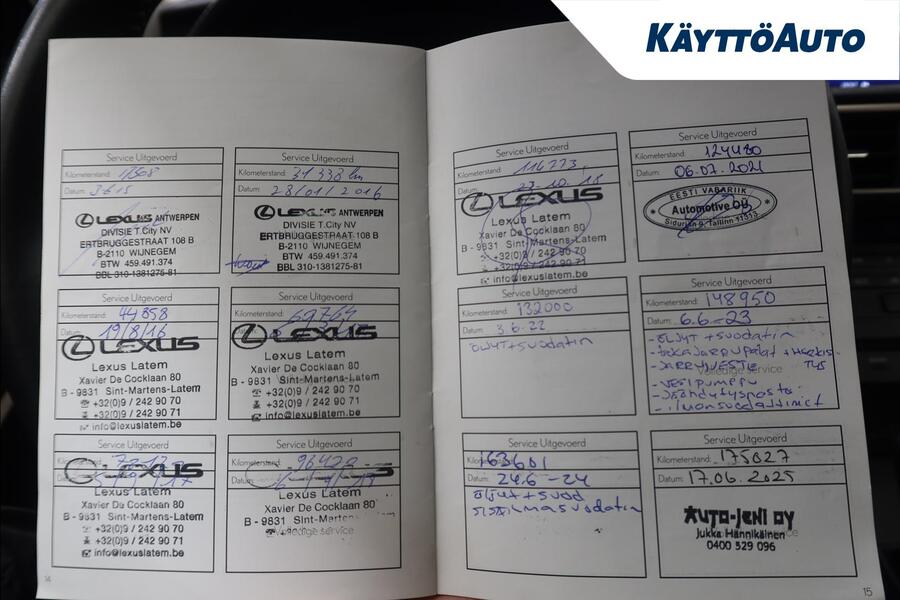 KÄYTTÖAUTO
Service Uitgevoerd
Kilometerstand:
Datum:
LEXUS ANTWERPEN
DIVISIE T.City NV
ERTBRUGGESTRAAT 108 B
B-2110 WIJNEGEM
BTW 459.491.374
BBL 310-1381275-81
Service Uitgevoerd
Kilometerstand: 31 338 km
Datum: 28/01/2016
LEXUS ANTWERPEN
DIVISIE T.City NV
ERTBRUGGESTRAAT 108 B
B-2110 WIJNEGEM
BTW 459.491.374
BBL 310-1381275-81
Service Uitgevoerd
Kilometerstand: 44 858
Datum: 19/8/16
LEXUS
Lexus Latem
Xavier De Cocklaan 80
B - 9831 Sint-Martens-Latem
+32(0)9 / 242 90 70
+32(0)9 / 242 90 71
info@lexuslatem.be
Service Uitgevoerd
Kilometerstand:
LEXUS
Lexus Latem
Xavier De Cocklaan 80
B - 9831 Sint-Martens-Latem
+32(0)9 / 242 90 70
+32(0)9 / 242 90 71
info@lexuslatem.be
Service Uitgevoerd
LEXUS
Lexus Latem
Xavier De Cocklaan 80
B - 9831 Sint-Martens-Latem
+32(0)9 / 242 90 70
+32(0)9 / 242 90 71
info@lexuslatem.be
Service Uitgevoerd
Kilometerstand:
Lexus Latem
Xavier De Cocklaan 80
B - 9831 Sint-Martens-
Volledige service
14
Service Uitgevoerd
Kilometerstand: 116273
LEXUS
Lexus Latem
Xavier De Cocklaan 80
B - 9831 Sint-Martens-Latem
+32(0)9 / 242 90 70
+32(0)9 / 242 90 71
info@lexuslatem.be
Service Uitgevoerd
Kilometerstand: 124480
Datum: 06.07.2021
EESTI VABARIIK
Automotive OÜ
Tallinn 11313
Service Uitgevoerd
Kilometerstand: 132000
Datum: 3.6.22
ÖLJYT+SUODATIN
Service Uitgevoerd
Kilometerstand: 148950
Datum: 6.6-23
- ÖLJYT + suodatin
- takajarrupalat + Herkis-
TYS
- JARRUNESTE
Volledige service
- vesipumppu
- Jäähdytysneste
- ilmansuodattimet
Service Uitgevoerd
Kilometerstand: 163601
Datum: 24.6-24
Öljyt + suod
sisäilmasuodatin
Service Uitgevoerd
Kilometerstand: 175027
Datum: 17.06.2025
AUTO-JENI OY
Jukka Hännikäinen
0400 529 096
15